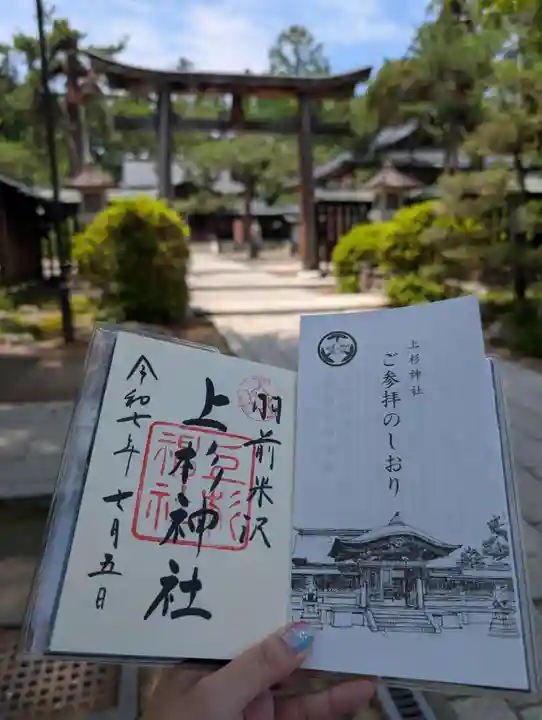 羽前米沢
上杉神社
令和七年七月五日
上杉神社
上杉神社
ご参拝のしおり